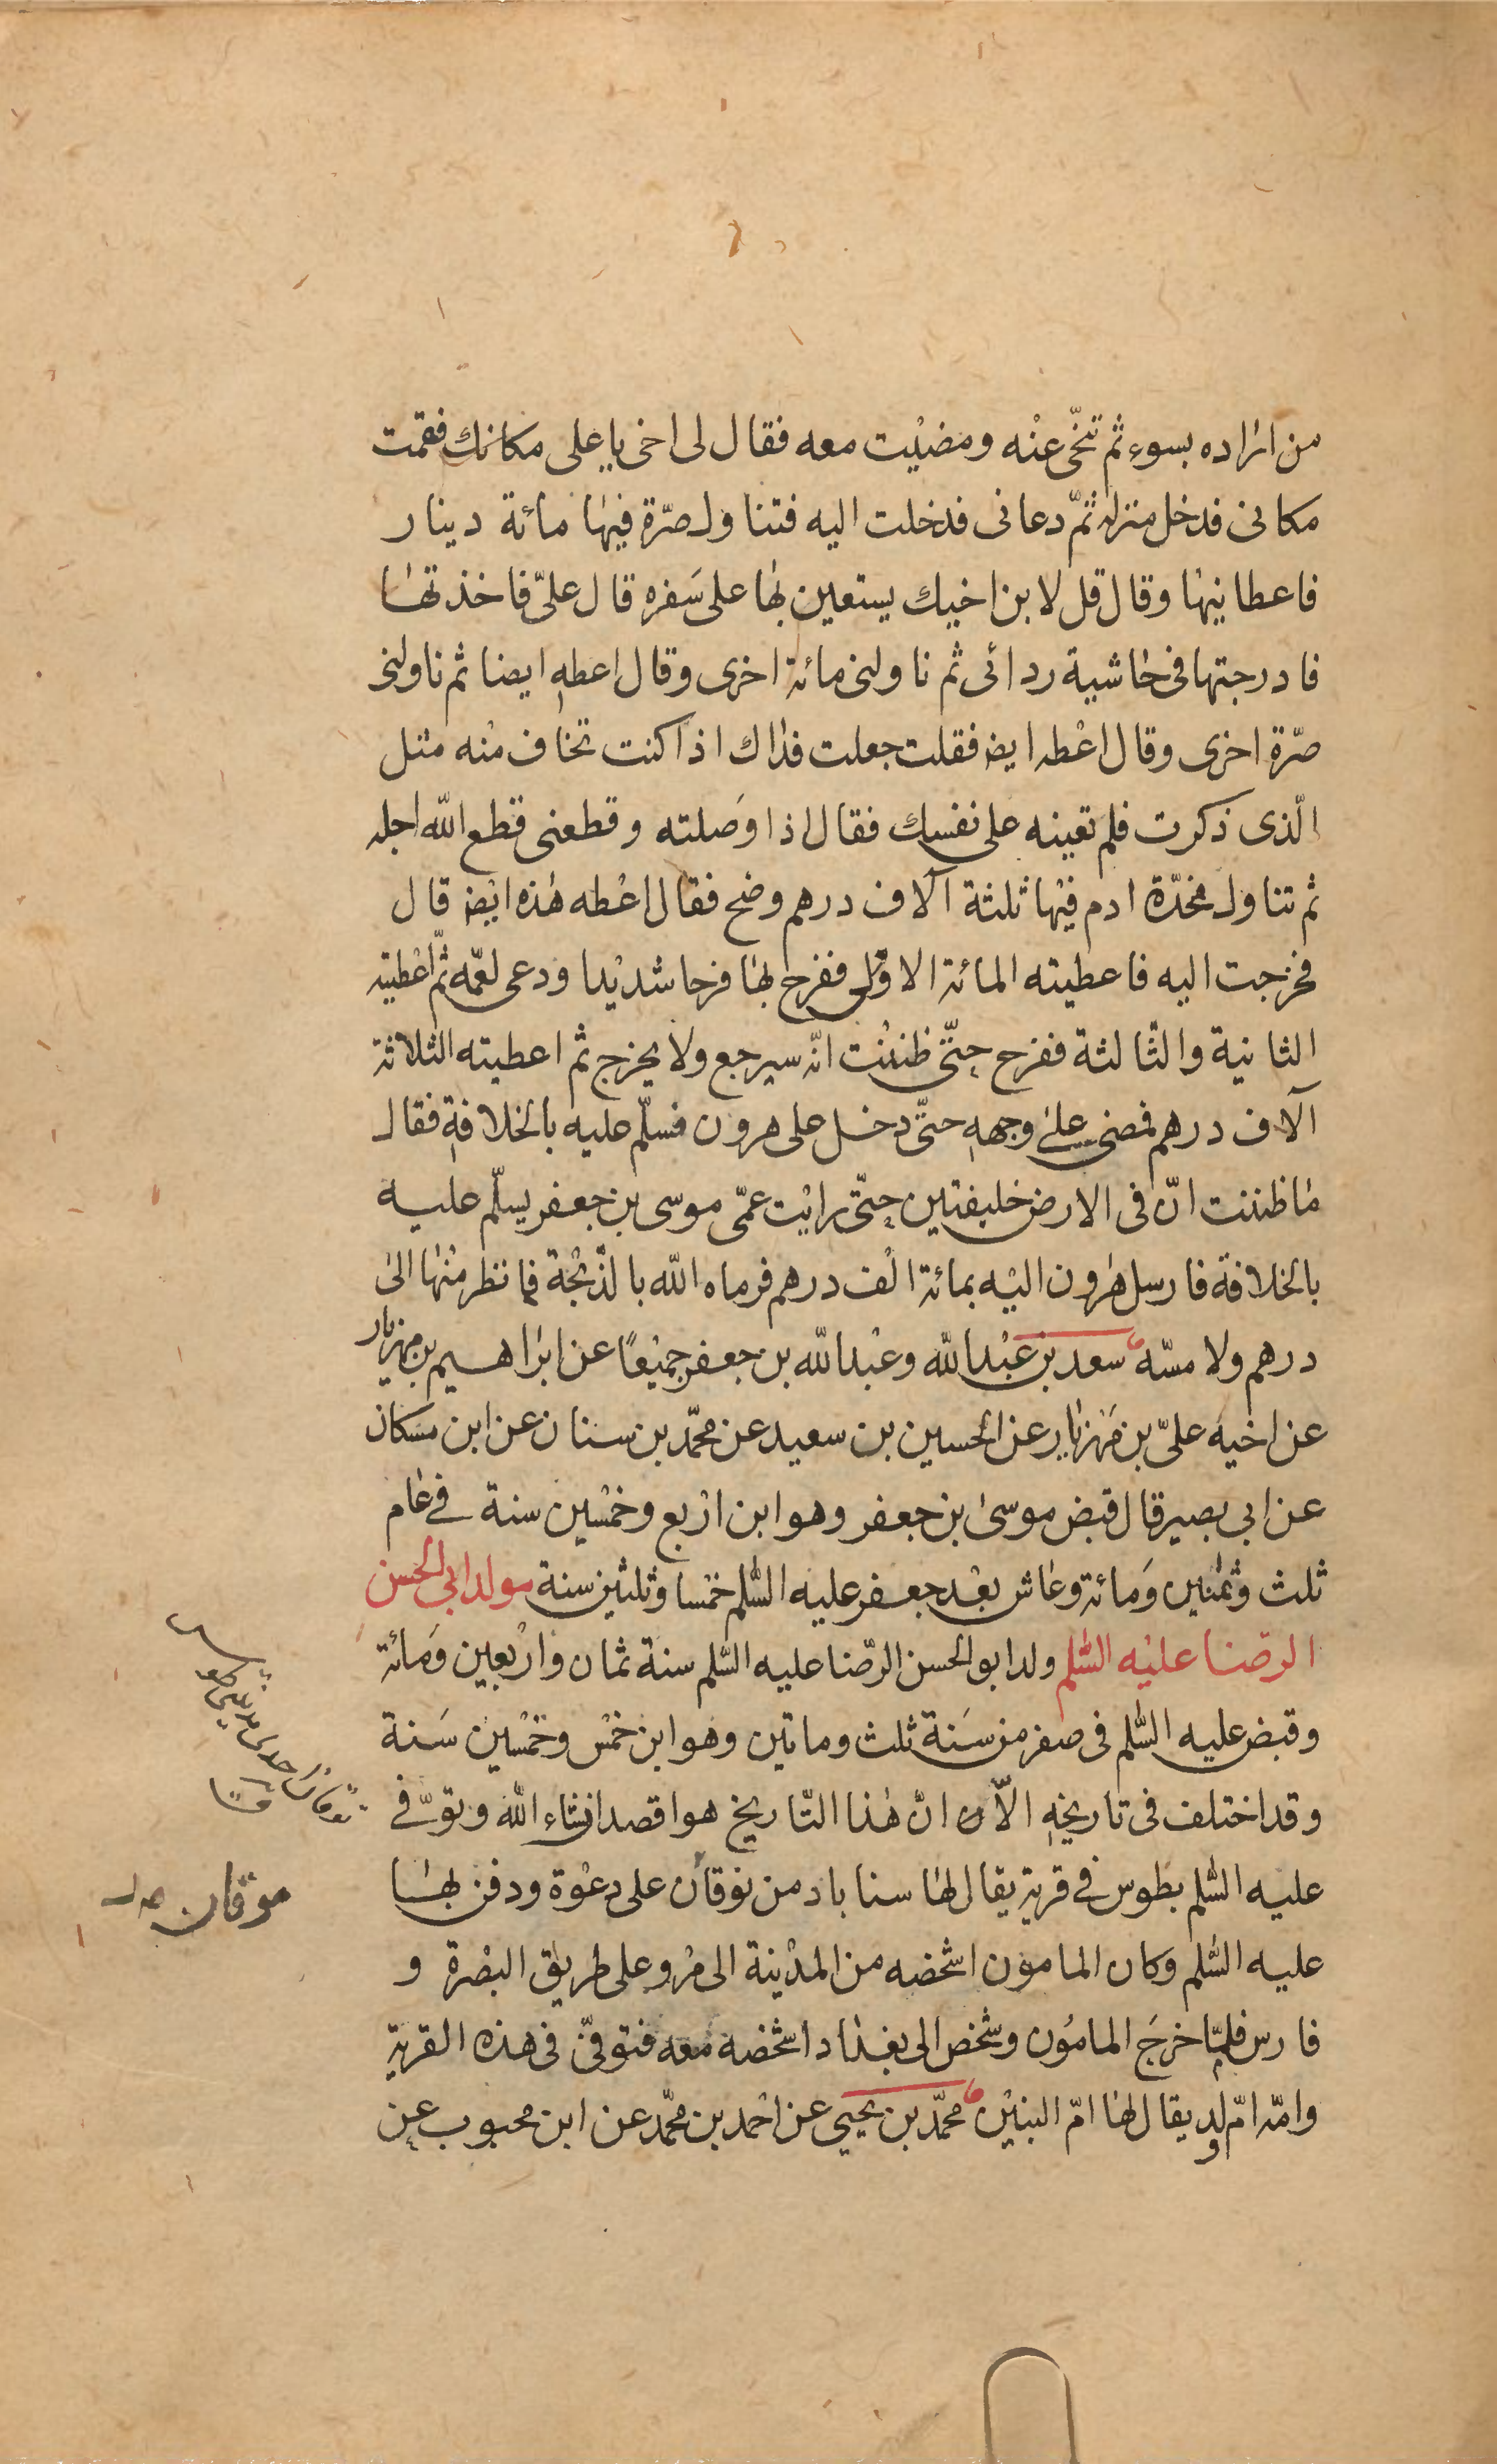 من اراده بسوء ثم تنحّى عنه ومضيت معه فقال لى اخى يا على مكانك فقمت
مكانى فدخل منزله ثمّ دعانى فدخلت اليه فتناول صرّة فيها مائة دينار
فاعطانيها وقال قل لابن اخيك يستعين بها على سَفره قال علىّ فاخذتها
فادرجتها فى حاشية ردائى ثم ناولنى مائة اخرى وقال اعطه ايضا ثم ناولنى
صرّة اخرى وقال اعطه ايضا فقلت جعلت فداك اذا كنت تخاف منه مثل
الّذى ذكرت فلم تعينه على نفسك فقال اذا وَصلته وقطعنى قطع الله اجله
ثم تناول مخدّة ادم فيها ثلثة آلاف درهم وضح فقال اعطه هذه ايضا قال
فخرجت اليه فاعطيته المائة الاولى ففرح بها فرحا شديدا ودعى لعمّه ثمّ اعطيته
الثانية والثالثة ففرح حتّى ظننت انّه سيرجع ولا يخرج ثم اعطيته الثلاثة
آلاف درهم فمضى على وجهه حتّى دخل على هرون فسلّم عليه بالخلافة فقال
ما ظننت انّ فى الارض خليفتين حتّى رايت عمّى موسى بن جعفر يسلّم عليه
بالخلافة فارسل هرون اليه بمائة الف درهم فرماه الله بالذّبحة فما نظر منها الى
درهم ولا مسّه سعد بن عبد الله وعبد الله بن جعفر جميعًا عن ابراهيم بن مهزيار
عن اخيه علىّ بن مَهزيار عن الحسين بن سعيد عن محمّد بن سنان عن ابن مسكان
عن ابى بصير قال قبض موسى بن جعفر وهو ابن اربع وخمسين سنة فى عام
ثلث وثمنين وَمائة وعاش بعد جعفر عليه السّلم خمسا وثلثين سنة مولد ابى الحسن
الرّضا عليه السّلم ولد ابو الحسن الرّضا عليه السّلم سنة ثمان واربعين وَمائة
وقبض عليه السّلم فى صفر من سَنة ثلث وماتين وهو ابن خمس وخمسين سَنة
وقد اختلف فى تاريخه الاّ ان انّ هذا التّاريخ هو اقصد انشاء الله وتوفّى
عليه السّلم بطوس فى قرية يقال لها سناباد من نوقان على دعوة ودفن بها
عليه السّلم وكان المامون اشخصه من المدينة الى مرو على طريق البصرة و
فارس فلمّا خرجَ المامُون وشخص الى بغداد اشخصه معه فتوفّى فى هذه القرية
وامّه امّ ولد يقال لها امّ البنين محمّد بن يحيى عن احمد بن محمّد عن ابن محبوب عن
موقان